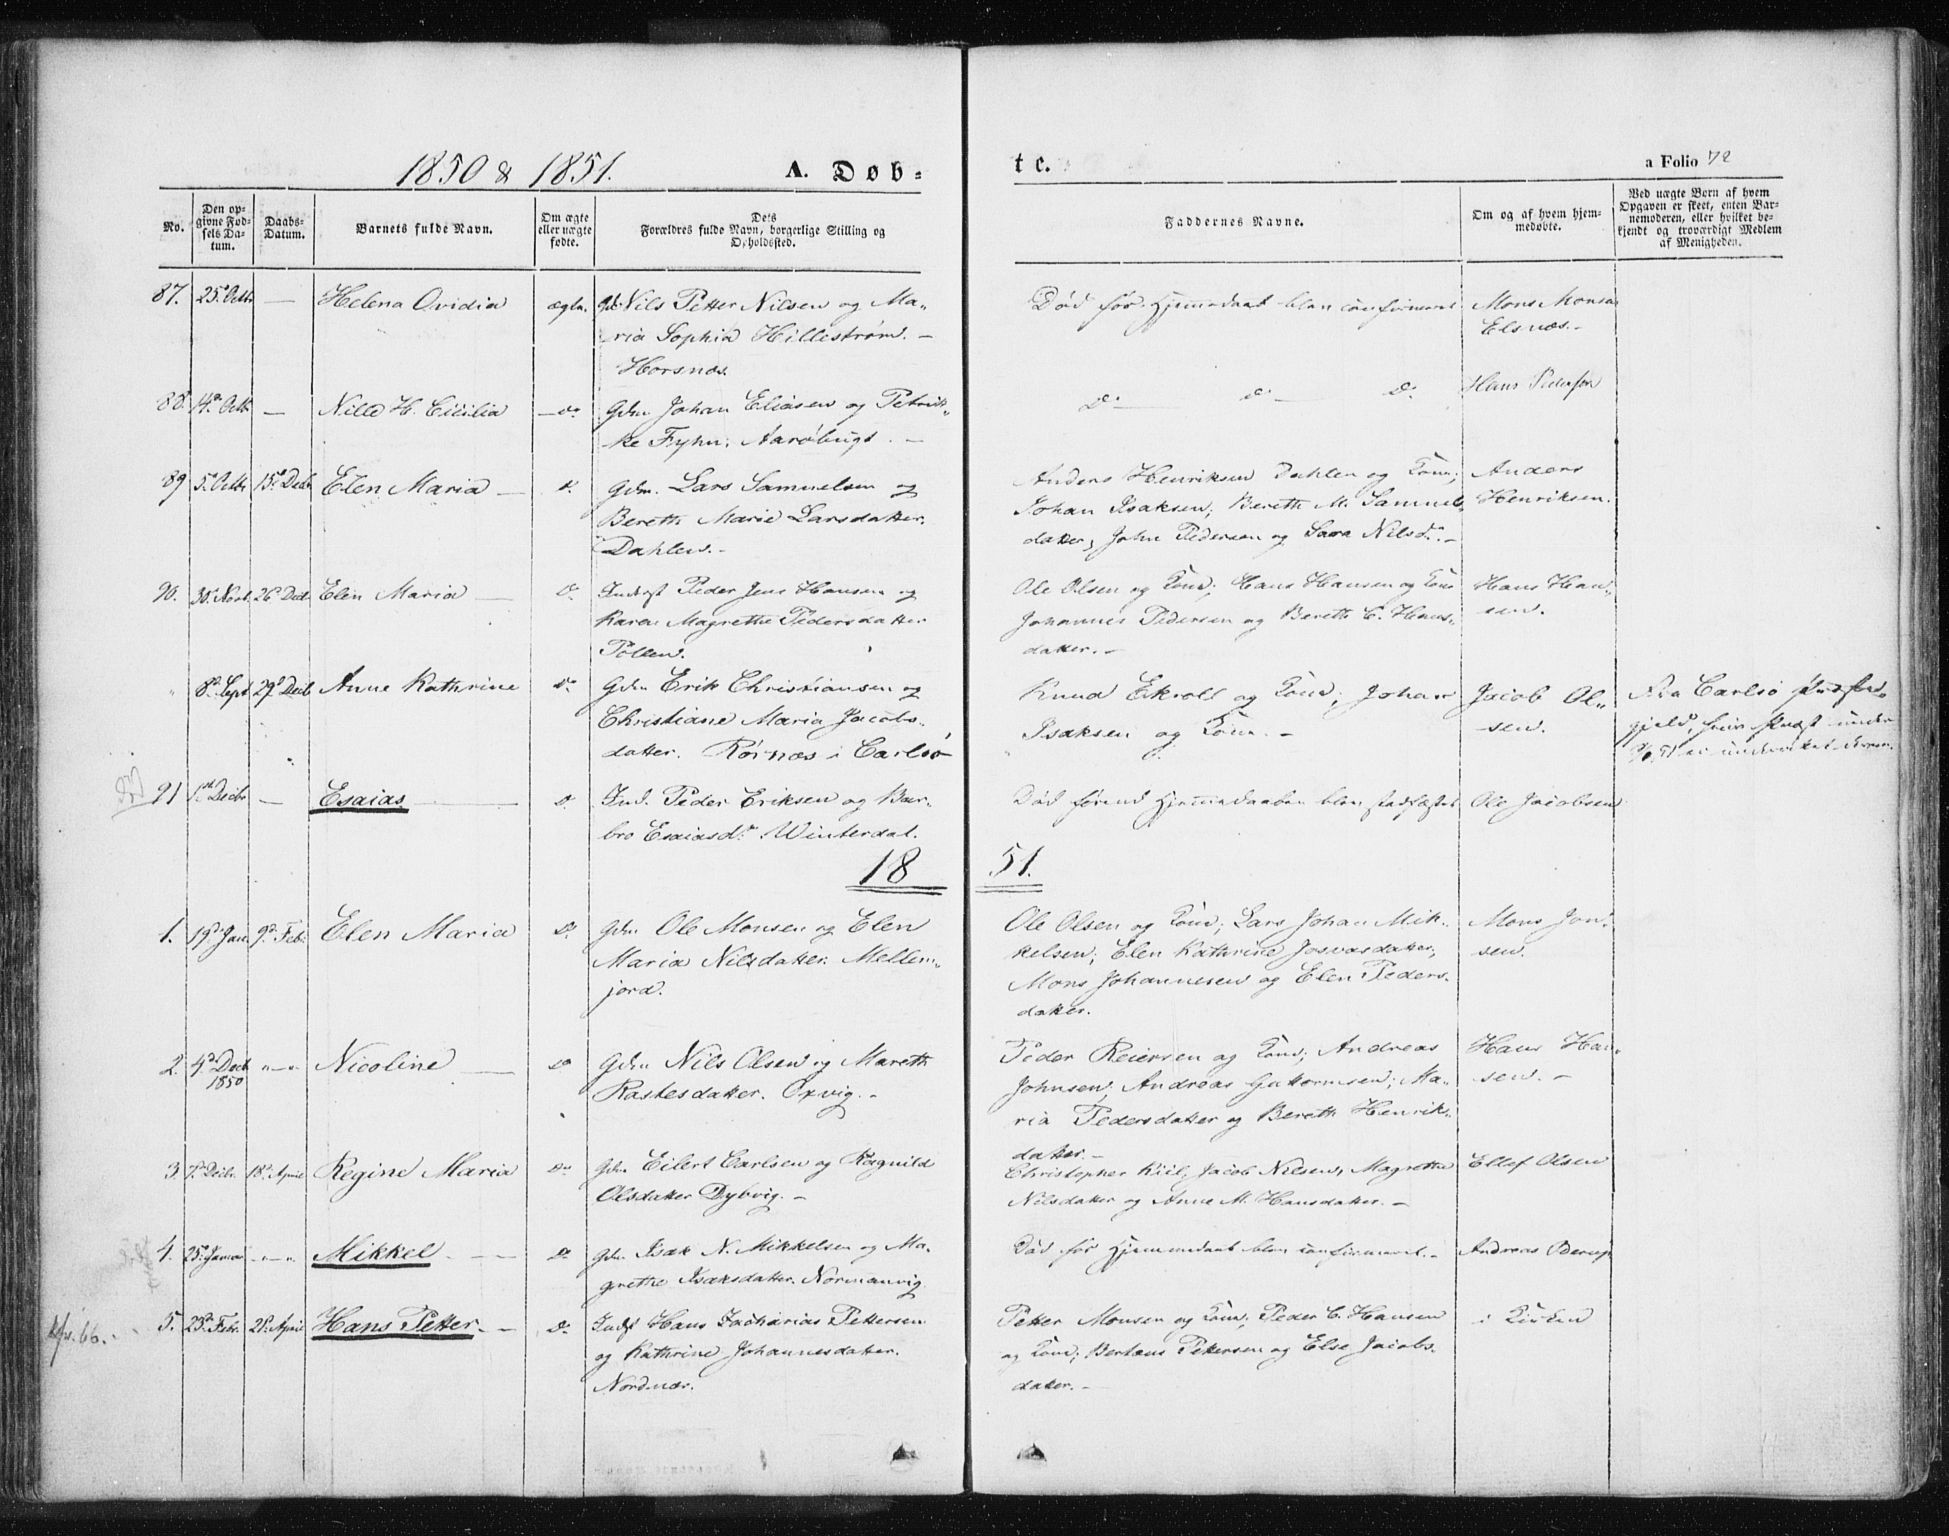 1850 & 1851.
A. Døb-
te.
a Folio 72
No.
Den op-
givne Fød-
sels Da-
tum.
Daabs-
Datum.
Barnets fulde Navn.
Om ægte
eller uægte
fødte.
Dets
Forældres fulde Navn, borgerlige Stilling og
Opholdssted.
Faddernes Navne.
Om og af hvem hjem-
medøbte.
Ved uægte Børn af hvem
Opgaven er skeet, enten Bar-
nemoderen, eller hvilket be-
kjendt og troværdigt Medlem
af Menigheden.
87. 25. Octb — Helena Ovidia ægte. Nils Petter Nilsen og Ma-
ria Sophia Hilleström. —
Horsnæs.
Död för Hjemmedaab blev confirmeret
Mons Monsen
Elsnæs. -
88. 14de Octb — Nille H. Cicilia — do Gdm Johan Eliasen og Petrik-
ke Fyhn. Aaröbugt. —
do — do — do
Hans Pedersen
89 5. Octb 15de Decb Elen Maria — do Gdm. Lars Samuelsen og
Bereth Marie Larsdatter.
Dahlen. -
Anders Henriksen Dahlen og Kone;
Johan Isaksen; Bereth M. Samuels-
datter, John Pedersen og Sara Nilsd. -
Anders
Henriksen.
90. 30. Novb. 26 Decb. Elen Maria — do Inderst Peder Jens Hansen og
Karen Magrethe Pedersdatter
Pollen.
Ole Olsen og Kone; Hans Hansen og Kone
Johannes Pedersen og Bereth C. Hans-
datter. -
Hans Han-
sen.
" 8de Sept 29de Decb Anne Kathrine do Gdm Erik Christiansen og
Christiane Maria Jacobs-
datter. Rörnæs i Carlsö
Knud Ekroll og Kone; Johan
Isaksen og Kone. -
Jacob Ol-
sen.
Fra Carlsö Præste-
gjeld, hvis Præst under
91 1ste Decbr — Esaias — do Ind. Peder Eriksen og Bar-
bro Esaiasdr Winterdal.
Död förend Hjemmedaaben blev stadfæstet
Ole Jacobsen
18 51.
1. 19de Jan. 9de Feb. Elen Maria do Gdm Ole Monsen og Elen
Maria Nilsdatter. Mellem-
jord.
Ole Olsen og Kone; Lars Johan Mik-
kelsen; Elen Kathrine Josvasdatter;
Mons Johannesen og Elen Peders-
datter.
Mons Jon-
sen.
2. 4de Decb
1850 "—" Nicoline — do Gdm Nils Olsen og Mareth
Rastesdatter. Oxvig. -
Peder Reiersen og Kone; Andreas
Johnsen; Andreas Guttormsen; Ma-
ria Pedersdatter og Bereth Henriks-
datter. -
Hans Han-
sen. -
3. 7de Decbr. 18de April Regine Maria do Gdm Eilert Carlsen og Ragnild
Olsdatter Dybvig. -
Christopher Kiil; Jacob Nilsen, Magrethe
Nilsdatter og Anne M. Hansdatter. -
Ellef Olsen
4. 25de Januar "—" Mikkel — do Gdm Isak N. Mikkelsen og Ma-
grethe Isaksdatter. Normanvig
Död för Hjemmedaab blev confirmeret. -
Andreas
5. 23de Febr. 21de April Hans Petter. — do Indst Hans Zacharias Pettersen
og Kathrine Johannesdatter.
Nordnæs.
Petter Monsen og Kone, Peder C. Hansen
og Kone; Bertaus Pettersen og Else Jacobs-
datter. -
i Kirken